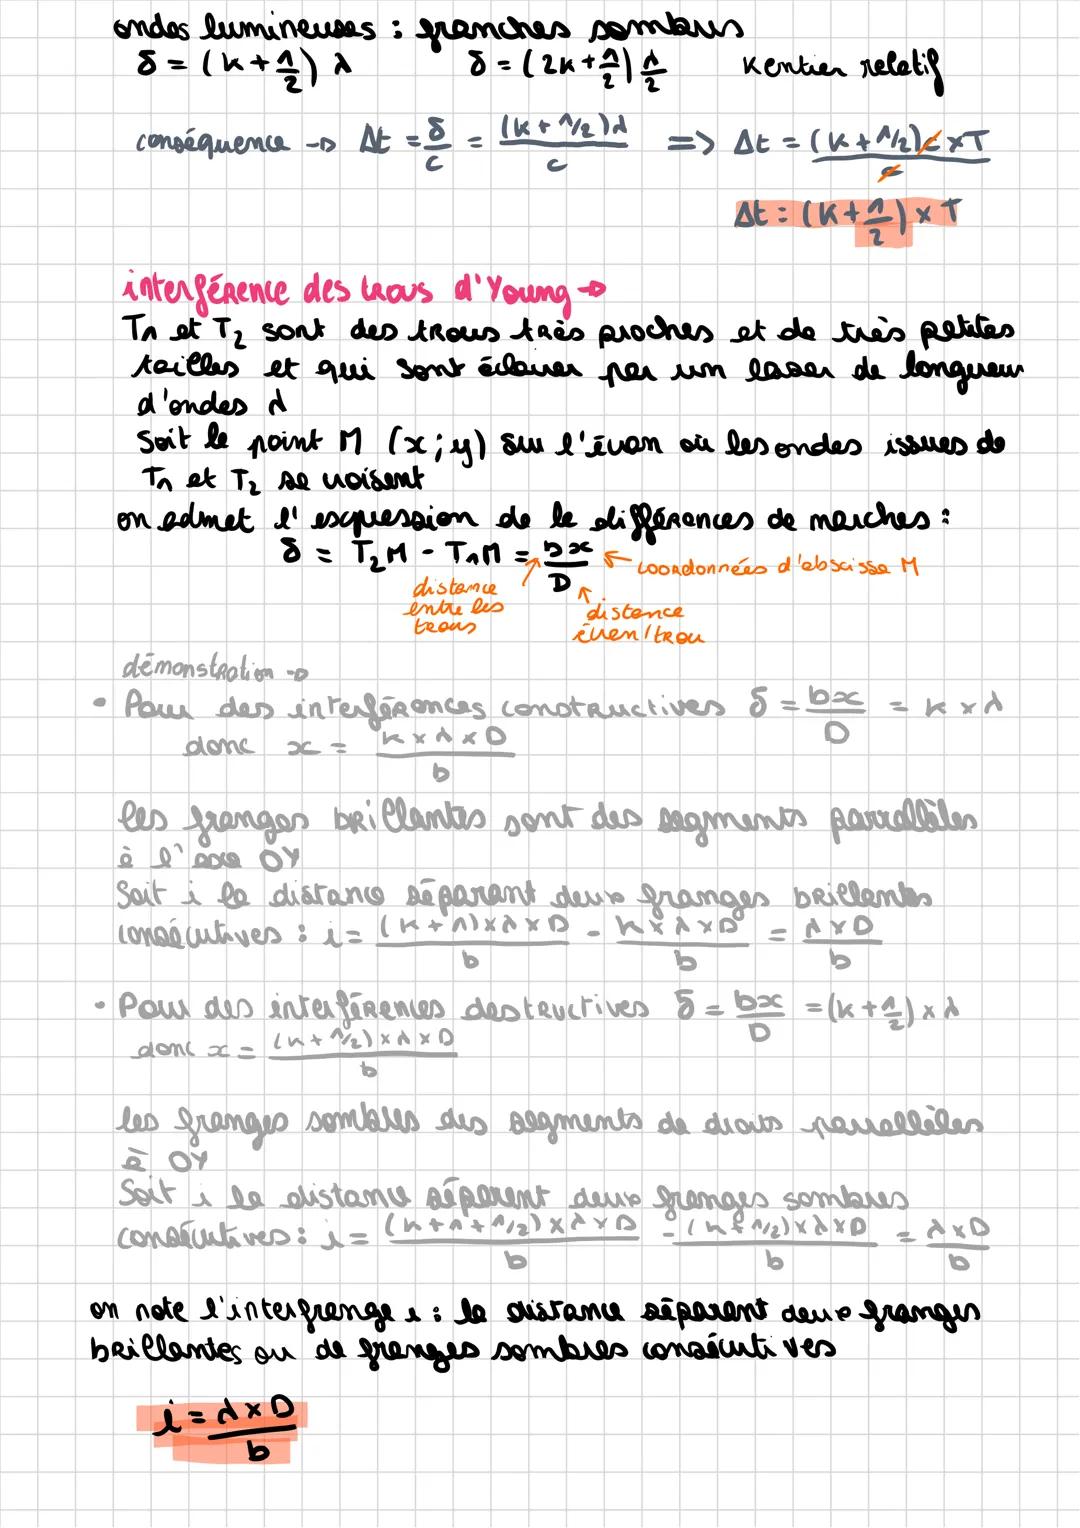 ondes lumineuses : franches sombres
δ = (k + 1/2) λ δ = (2k + 1/2) λ/2 k entier relatif
conséquence → Δt = δ/c = (k + 1/2)λ/c => Δt = (k + 1/2) c x T/c
Δt = (k + 1/2) x T
interférence des trous d'Young →
T1 et T2 sont des trous très proches et de très petites
tailles et qui sont éclairer par un laser de longueur
d'ondes λ
Soit le point M (x ; y) sur l'écran où les ondes issues de
T1 et T2 se croisent
on admet l'expression de la différences de marches :
δ = T2M - T1M = bx/D ← coordonnées d'abscisse M
distance
entre les
trous
distance
écran/trou
démonstration →
• Pour des interférences constructives δ = bx/D = k x λ
donc x = k x λ x D/b
les franges brillantes sont des segments parrallèles
à l'axe OY
Soit i la distance séparant deux franges brillantes
consécutives : i = (k + 1) x λ x D/b - k x λ x D/b = λ x D/b
• Pour des interférences destructives δ = bx/D = (k + 1/2) x λ
donc x = (k + 1/2) x λ x D/b
les franges sombres des segments de droits parrallèles
à OY
Soit i la distance séparent deux franges sombres
consécutives : i = (k + 1 + 1/2) x λ x D/b - (k + 1/2) x λ x D/b = λ x D/b
on note l'interfrange i : la distance séparent deux franges
brillantes ou de franges sombres consécutives
i = λ x D/b